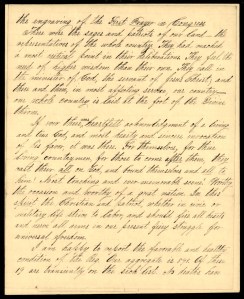 the engraving of the First Prayer in Congress
There were the sages and patriots of our land — the
representatives of the whole country. They had reached
a most critical point in their deliberations. They feel the
need of higher wisdom than they possess. They call in
the minister of God, the servant of Jesus Christ, and
then and there, in most affecting service our countrymen
our whole country is laid at the foot of the Divine
throne.
It was there, a heartfelt acknowledgment of a living
and true God, and most hearty and sincere invocation
of his favor, it was there. For themselves, for their
living countrymen, for those to come after them, they
cast their all on God, and bound themselves and all to
him. A touching and ever memorable scene! Worthy
the occasion and worthy of a great nation. In this
spirit the Christian and patriot, whether in civic or
military life, ought to labor, and should fire all hearts
and nerve all arms in our present great struggle for
universal freedom.
I am happy to report the favorable and healthy
condition of the Reg. Our aggregate is 792. Of these
19 are transiently on the sick list. No deaths have